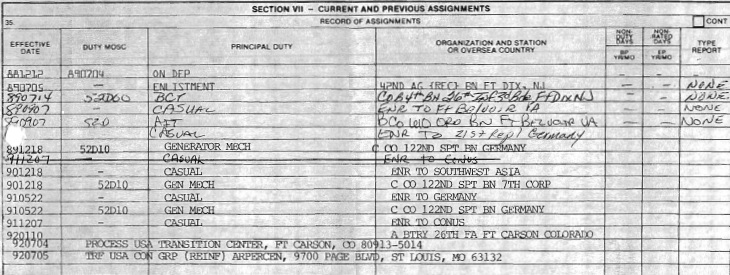 SECTION VII – CURRENT AND PREVIOUS ASSIGNMENTS
35 RECORD OF ASSIGNMENTS CONT
EFFECTIVE DATE DUTY MOSC PRINCIPAL DUTY ORGANIZATION AND STATION OR OVERSEA COUNTRY NON-DUTY DAYS NON-RATED DAYS TYPE REPORT
BP YR/MO EP YR/MO
881212 A90704 ON DEP — —
890705 — ENLISTMENT 42ND AG (REC) BN FT DIX, NJ — — NONE
890714 BCT FT DIX NJ — — NONE
CASUAL ENR TO Ft Belvoir VA NONE
52D AIT Ord BN Ft BELVOIR VA — — NONE
CASUAL ENR TO 21st Repl Germany
891218 52D10 GENERATOR MECH C CO 122ND SPT BN GERMANY
911207 — CASUAL ENR TO CONUS
901218 — CASUAL ENR TO SOUTHWEST ASIA
901218 52D10 GEN MECH C CO 122ND SPT BN 7TH CORP
910522 — CASUAL ENR TO GERMANY
910522 52D10 GEN MECH C CO 122ND SPT BN GERMANY
911207 — CASUAL ENR TO CONUS
920110 A BTRY 26TH FA FT CARSON COLORADO
920704 PROCESS USA TRANSITION CENTER, FT CARSON, CO 80913-5014
920705 TRF USA CON GRP (REINF) ARPERCEN, 9700 PAGE BLVD, ST LOUIS, MO 63132